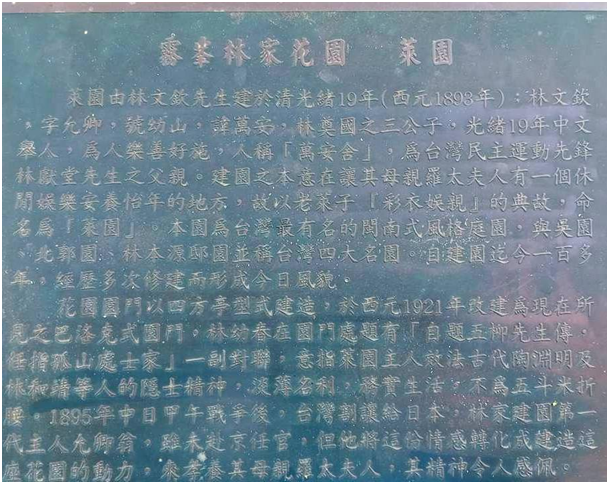 霧峯林家花園　萊園
萊園由林文欽先生建於清光緒19年(西元1893年)；林文欽
，字允卿，號幼山，諱萬安，林奠國之三公子，光緒19年中文
舉人，為人樂善好施，人稱「萬安舍」，為台灣民主運動先鋒
林獻堂先生之父親。建園之本意在讓其母親羅太夫人有一個休
閒娛樂安養怡年的地方，故以老萊子『彩衣娛親』的典故，命
名為『萊園』。本園為台灣最有名的閩南式風格庭園，與吳園
、北郭園、林本源邸園並稱台灣四大名園。自建園迄今一百多
年，經歷多次修建而形成今日風貌。
花園園門以四方亭型式建造，於西元1921年改建為現在所
見之巴洛克式園門，林幼春在園門處題有「自題五柳先生傳，
任指孤山處士家」一副對聯，意指萊園主人效法古代陶淵明及
林和靖等人的隱士精神，淡薄名利，務實生活，不為五斗米折
腰。1895年中日甲午戰爭後，台灣割讓給日本，林家建園第一
代主人允卿翁，雖未赴京任官，但他將這份情感轉化成建造這
座花園的動力，來孝養其母親羅太夫人，其精神令人感佩。